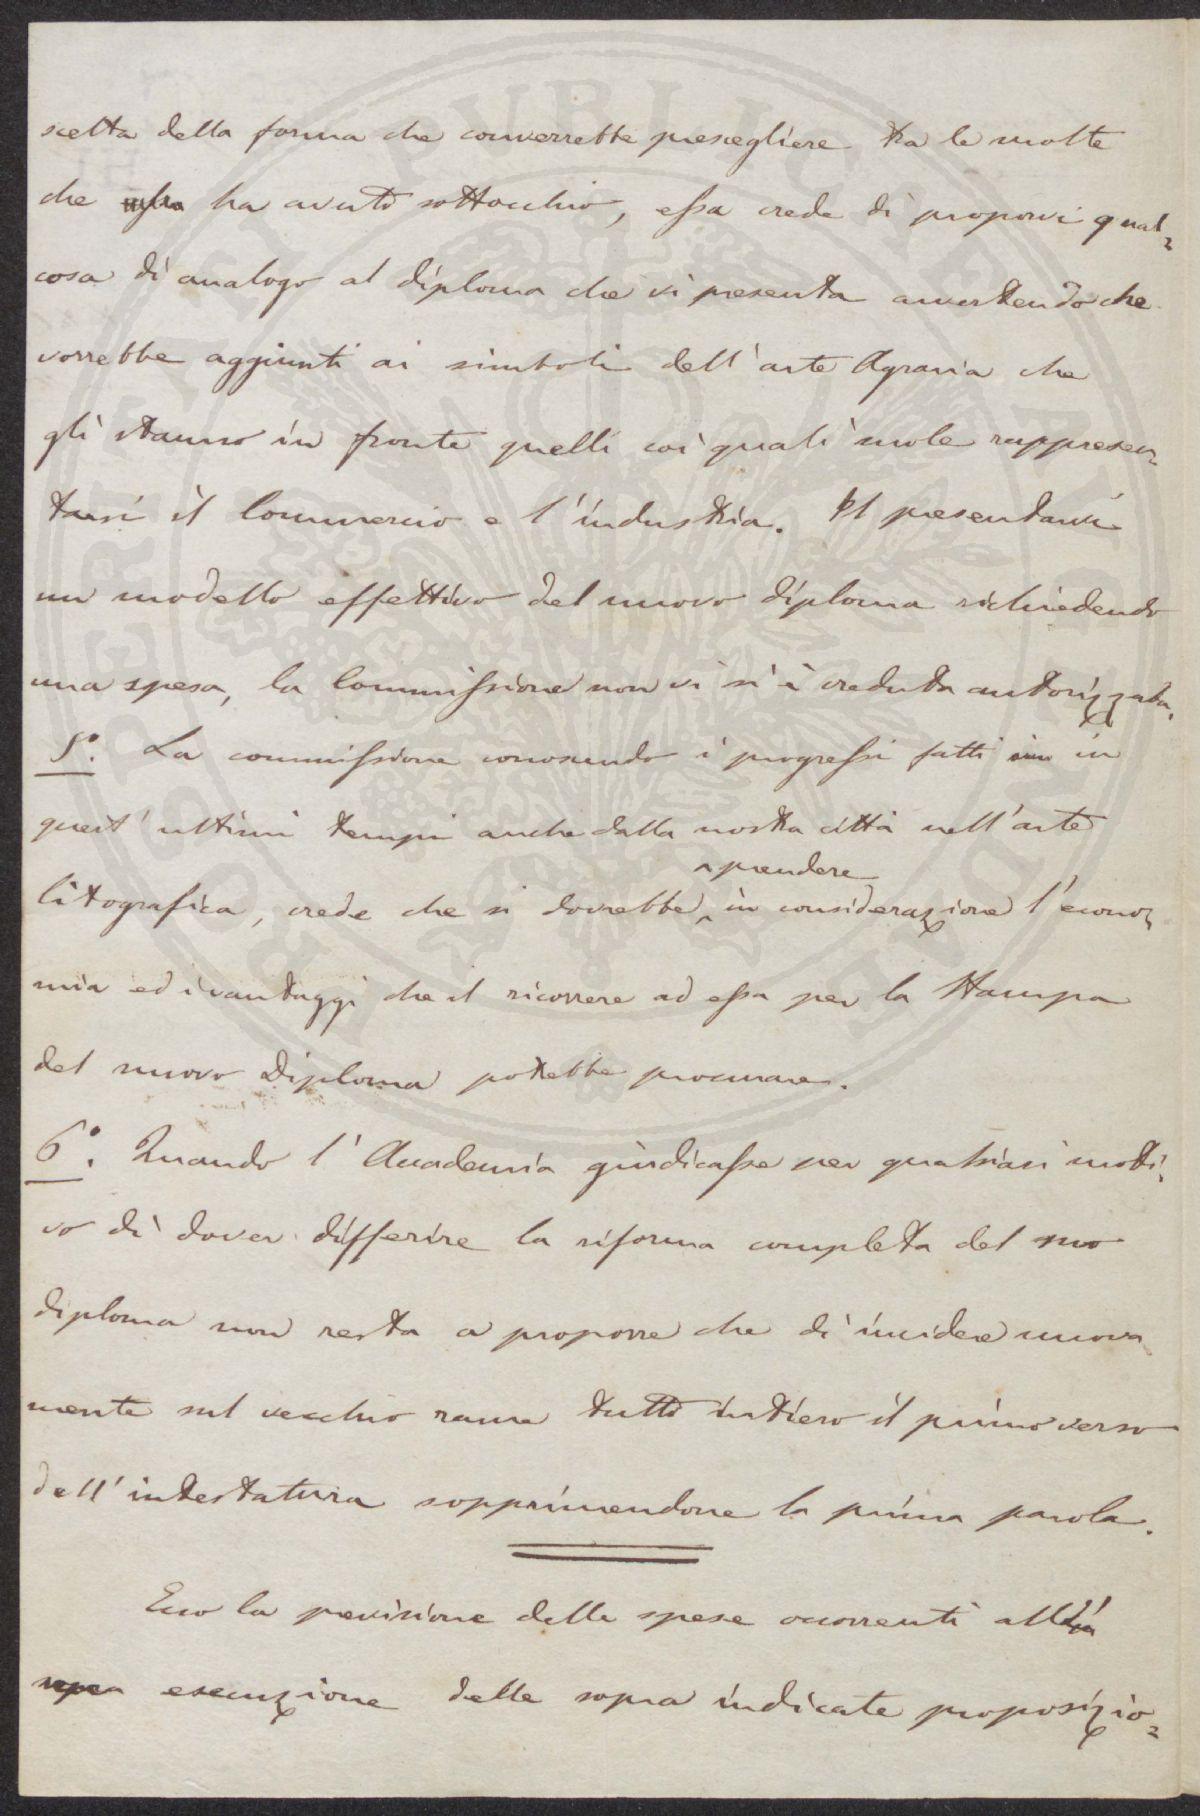 scelta della forma che converrebbe prescegliere tra le molte
che ha avuto sottocchio, essa crede di proporvi qual-
cosa di analogo al diploma che vi presenta avvertendo che
vorrebbe aggiunti ai simboli dell'arte Agraria che
gli stanno in fronte quelli coi quali suole rappresen-
tarsi il Commercio e l'industria. Il presentarvi
un modello effettivo del nuovo diploma richiedendo
una spesa, la Commissione non vi si è creduta autorizzata.
5º. La commissione conoscendo i progressi fatti in
quest'ultimi tempi anche dalla nostra città nell'arte
prendere
litografica, crede che si dovrebbe in considerazione l'econo-
mia ed i vantaggi che il ricorrere ad essa per la Stampa
del nuovo Diploma potrebbe procurare.
6º. Quando l'Accademia giudicasse per qualsiasi moti-
vo di dover differire la riforma completa del suo
diploma non resta a proporre che di incidere nuova
mente sul vecchio rame tutto intiero il primo verso
dell'intestatura sopprimendone la prima parola.
Ecco la previsione delle spese occorrenti all'
esecuzione delle sopra indicate proposizio-
PVBLICA